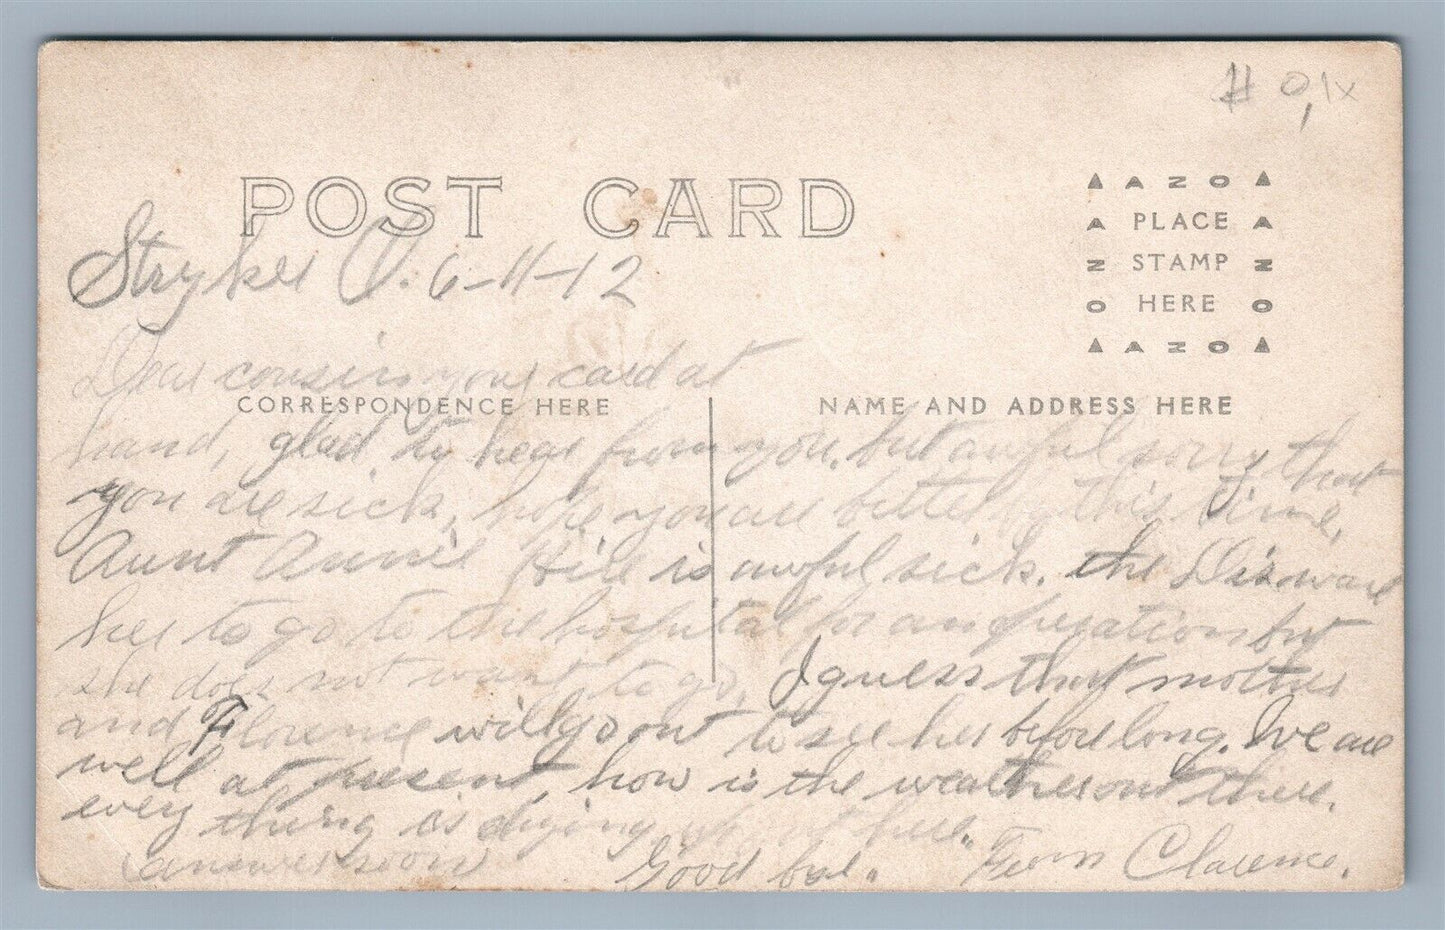 # 0,1x
POST CARD
AZO
PLACE
STAMP
HERE
AZO
Stryker O. 6-11-12
Dear cousin your card at
CORRESPONDENCE HERE
NAME AND ADDRESS HERE
hand, glad to hear from you, but awful sorry that
you are sick, hope you are better by this time.
Aunt Annie is awful sick. the Dis want
her to go to the hospital for an operation but
she does not want to go, I guess that mother
and Florence will go out to see her before long. We are
well at present, how is the weather out there.
every thing is drying up out here.
answer soon Good bye. From Clarence.